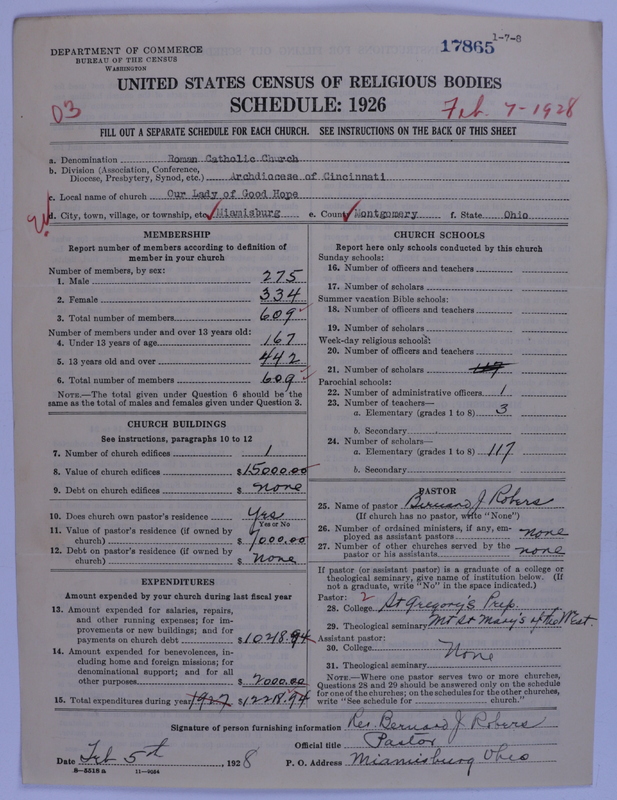 1-7-8
17865
DEPARTMENT OF COMMERCE
BUREAU OF THE CENSUS
WASHINGTON
UNITED STATES CENSUS OF RELIGIOUS BODIES
SCHEDULE: 1926
D3
Feb. 7-1928
FILL OUT A SEPARATE SCHEDULE FOR EACH CHURCH. SEE INSTRUCTIONS ON THE BACK OF THIS SHEET
a. Denomination Roman Catholic Church
b. Division (Association, Conference,
Diocese, Presbytery, Synod, etc.) Archdiocese of Cincinnati
c. Local name of church Our Lady of Good Hope
d. City, town, village, or township, etc. Miamisburg e. County Montgomery f. State Ohio
MEMBERSHIP
Report number of members according to definition of
member in your church
Number of members, by sex:
1. Male 275
2. Female 334
3. Total number of members 609
Number of members under and over 13 years old:
4. Under 13 years of age 167
5. 13 years old and over 442
6. Total number of members 609
NOTE.—The total given under Question 6 should be the
same as the total of males and females given under Question 3.
CHURCH BUILDINGS
See instructions, paragraphs 10 to 12
7. Number of church edifices 1
8. Value of church edifices $15000.00
9. Debt on church edifices $ none
10. Does church own pastor's residence Yes
Yes or No
11. Value of pastor's residence (if owned by
church) $7000.00
12. Debt on pastor's residence (if owned by
church) $ None
EXPENDITURES
Amount expended by your church during last fiscal year
13. Amount expended for salaries, repairs,
and other running expenses; for im-
provements or new buildings; and for
payments on church debt $10218.94
14. Amount expended for benevolences, in-
cluding home and foreign missions; for
denominational support; and for all
other purposes $2000.00
15. Total expenditures during year 1927 $12218.94
CHURCH SCHOOLS
Report here only schools conducted by this church
Sunday schools:
16. Number of officers and teachers
17. Number of scholars
Summer vacation Bible schools:
18. Number of officers and teachers
19. Number of scholars
Week-day religious schools:
20. Number of officers and teachers
21. Number of scholars 117
Parochial schools:
22. Number of administrative officers 1
23. Number of teachers—
a. Elementary (grades 1 to 8) 3
b. Secondary
24. Number of scholars—
a. Elementary (grades 1 to 8) 117
b. Secondary
PASTOR
25. Name of pastor Bernard J Robers
(If church has no pastor, write "None")
26. Number of ordained ministers, if any, em-
ployed as assistant pastors none
27. Number of other churches served by the
pastor or his assistants none
If pastor (or assistant pastor) is a graduate of a college or
theological seminary, give name of institution below. (If
not a graduate, write "No" in the space indicated.)
Pastor: 2
28. College St Gregory's Prep.
29. Theological seminary Mt St Mary's of the West.
Assistant pastor:
30. College None
31. Theological seminary
NOTE.—Where one pastor serves two or more churches,
Questions 28 and 29 should be answered only on the schedule
for one of the churches; on the schedules for the other churches,
write "See schedule for church."
Signature of person furnishing information Rev. Bernard J. Robers
Official title Pastor
Date Feb 5th, 1928 P. O. Address Miamisburg Ohio
8-5518 a 11-9064